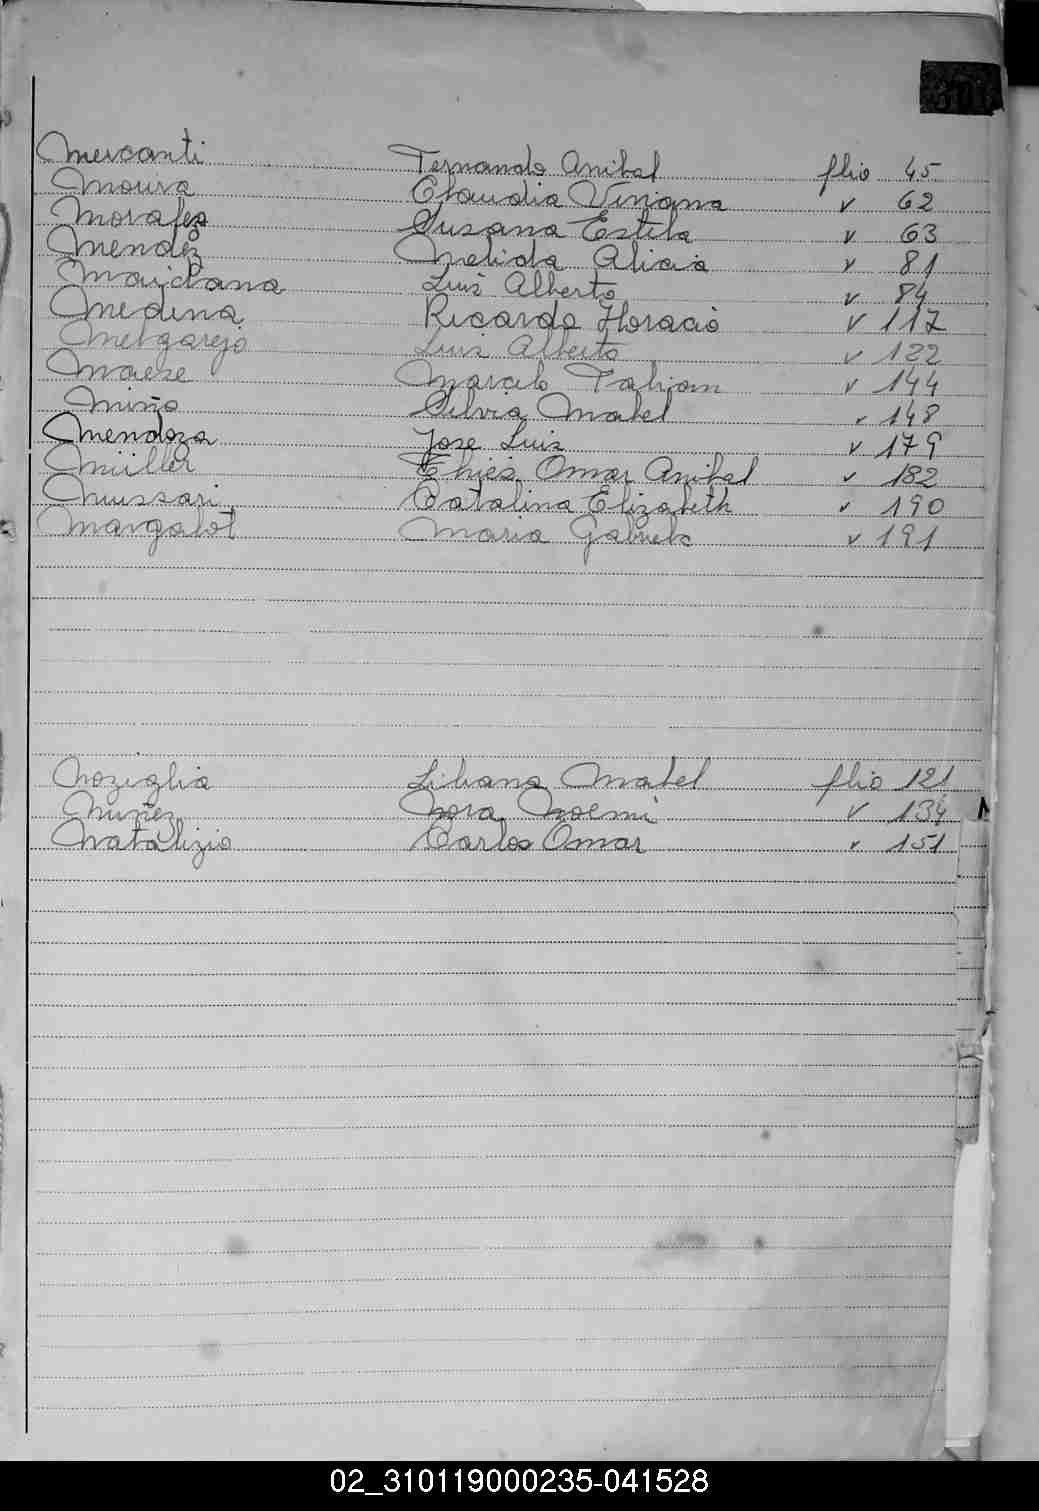 Mercanti Fernando Anibal flio 45
Moura Claudia Viviana v 62
Morales Susana Estela v 63
Mendez Melida Alicia v 81
Maidana Luis Alberto v 84
Medina Ricardo Horacio v 117
Melgarejo Luis Alberto v 122
Maese Marcelo Fabian v 144
Miño Silvia Mabel v 148
Mendoza Jose Luis v 179
Müller Omar Anibal v 182
Mussari Catalina Elizabeth v 190
Margalot Maria Gabriela v 191
Noziglia Liliana Mabel flio 121
Nuñez Nora Noemi v 134
Natalizio Carlos Omar v 151
02_310119000235-041528